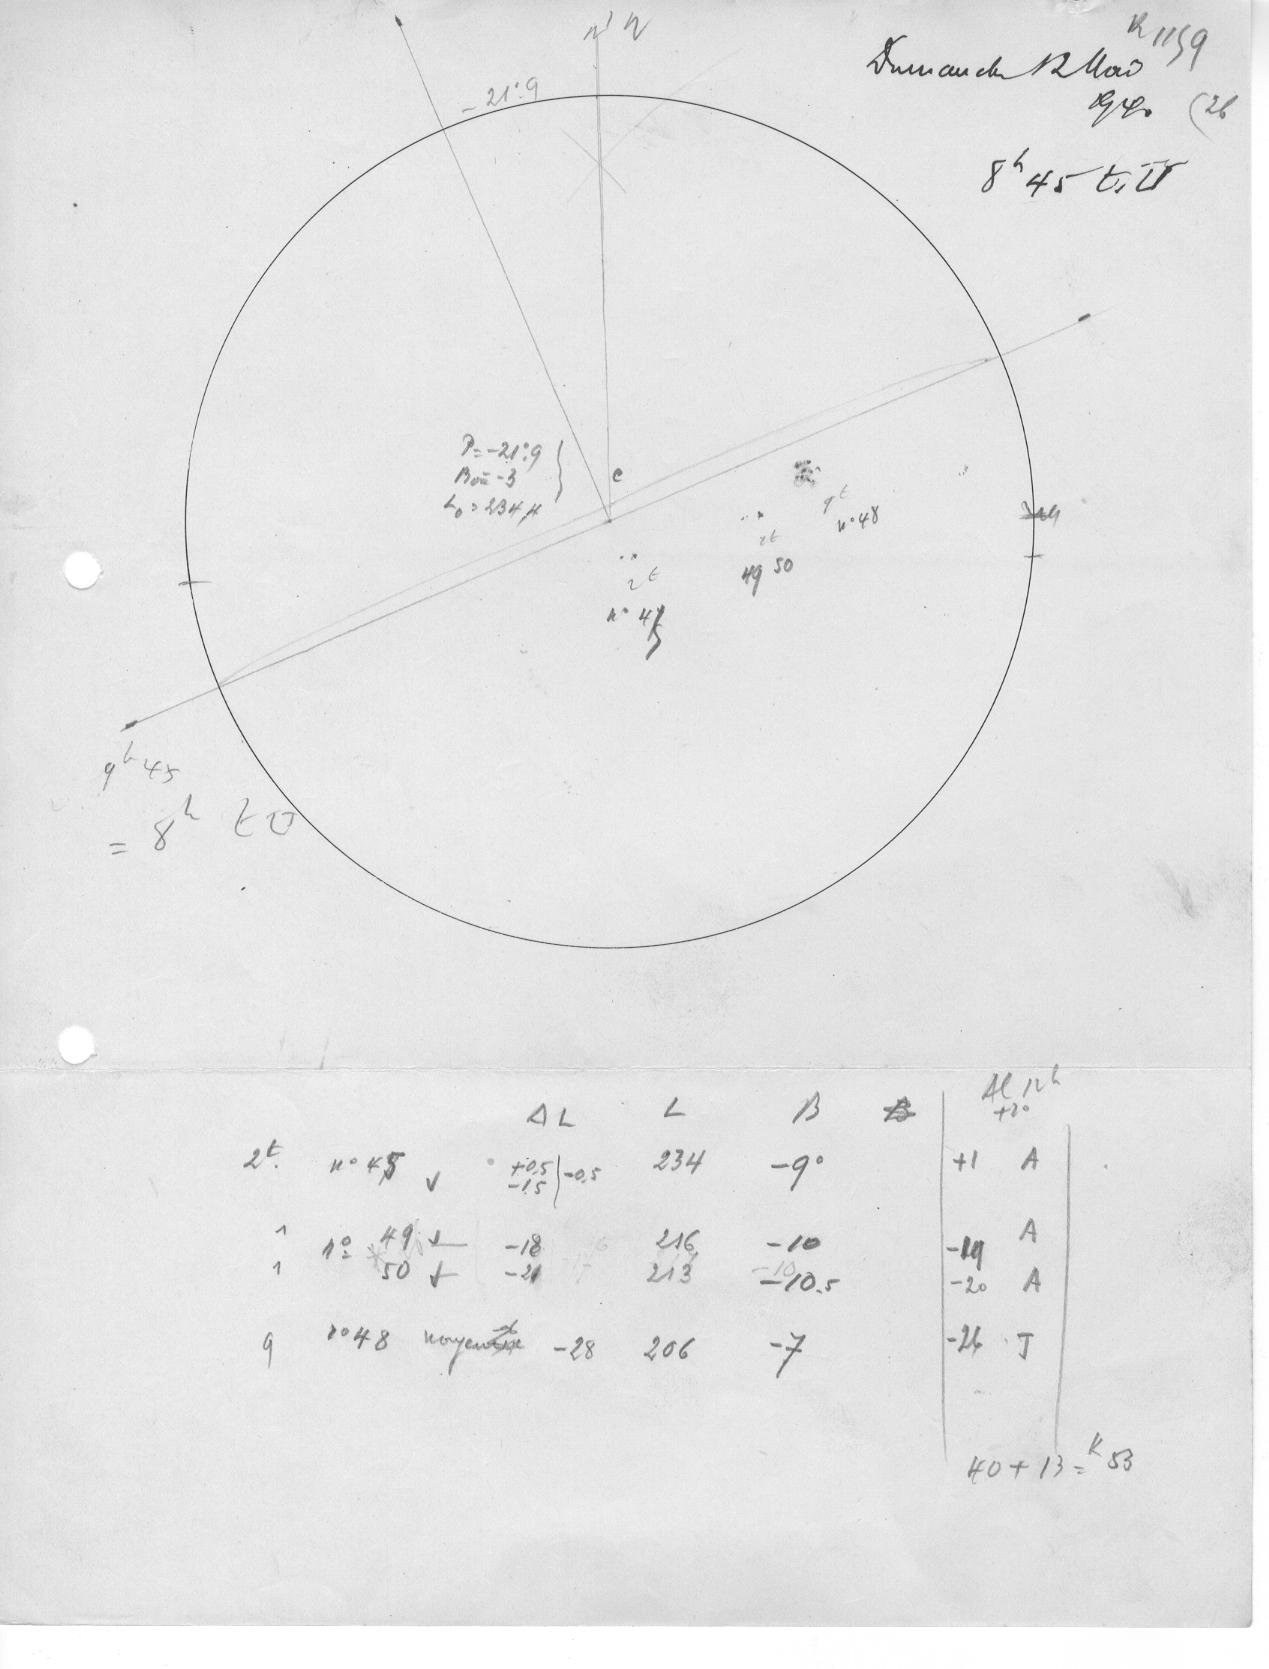 R 1159
Dimanche 12 Mai
1940 (26
8h 45 t.U
n' n
-21°.9
P=-21°.9
Bo=-3
Lo=234,4
c
9t
n° 48
2t
49 50
2t
n° 45
9h 45
= 8h t U
Δ L L B B Al 12h
+20
2t. n° 45 +0.5 -0.5 234 -9° +1 A
-1.5
1 n° 49 -18 216 -10 -19 A
1 50 -21 213 -10.5 -20 A
9 n° 48 moyen -28 206 -7 -26 J
40 + 13 = K 53